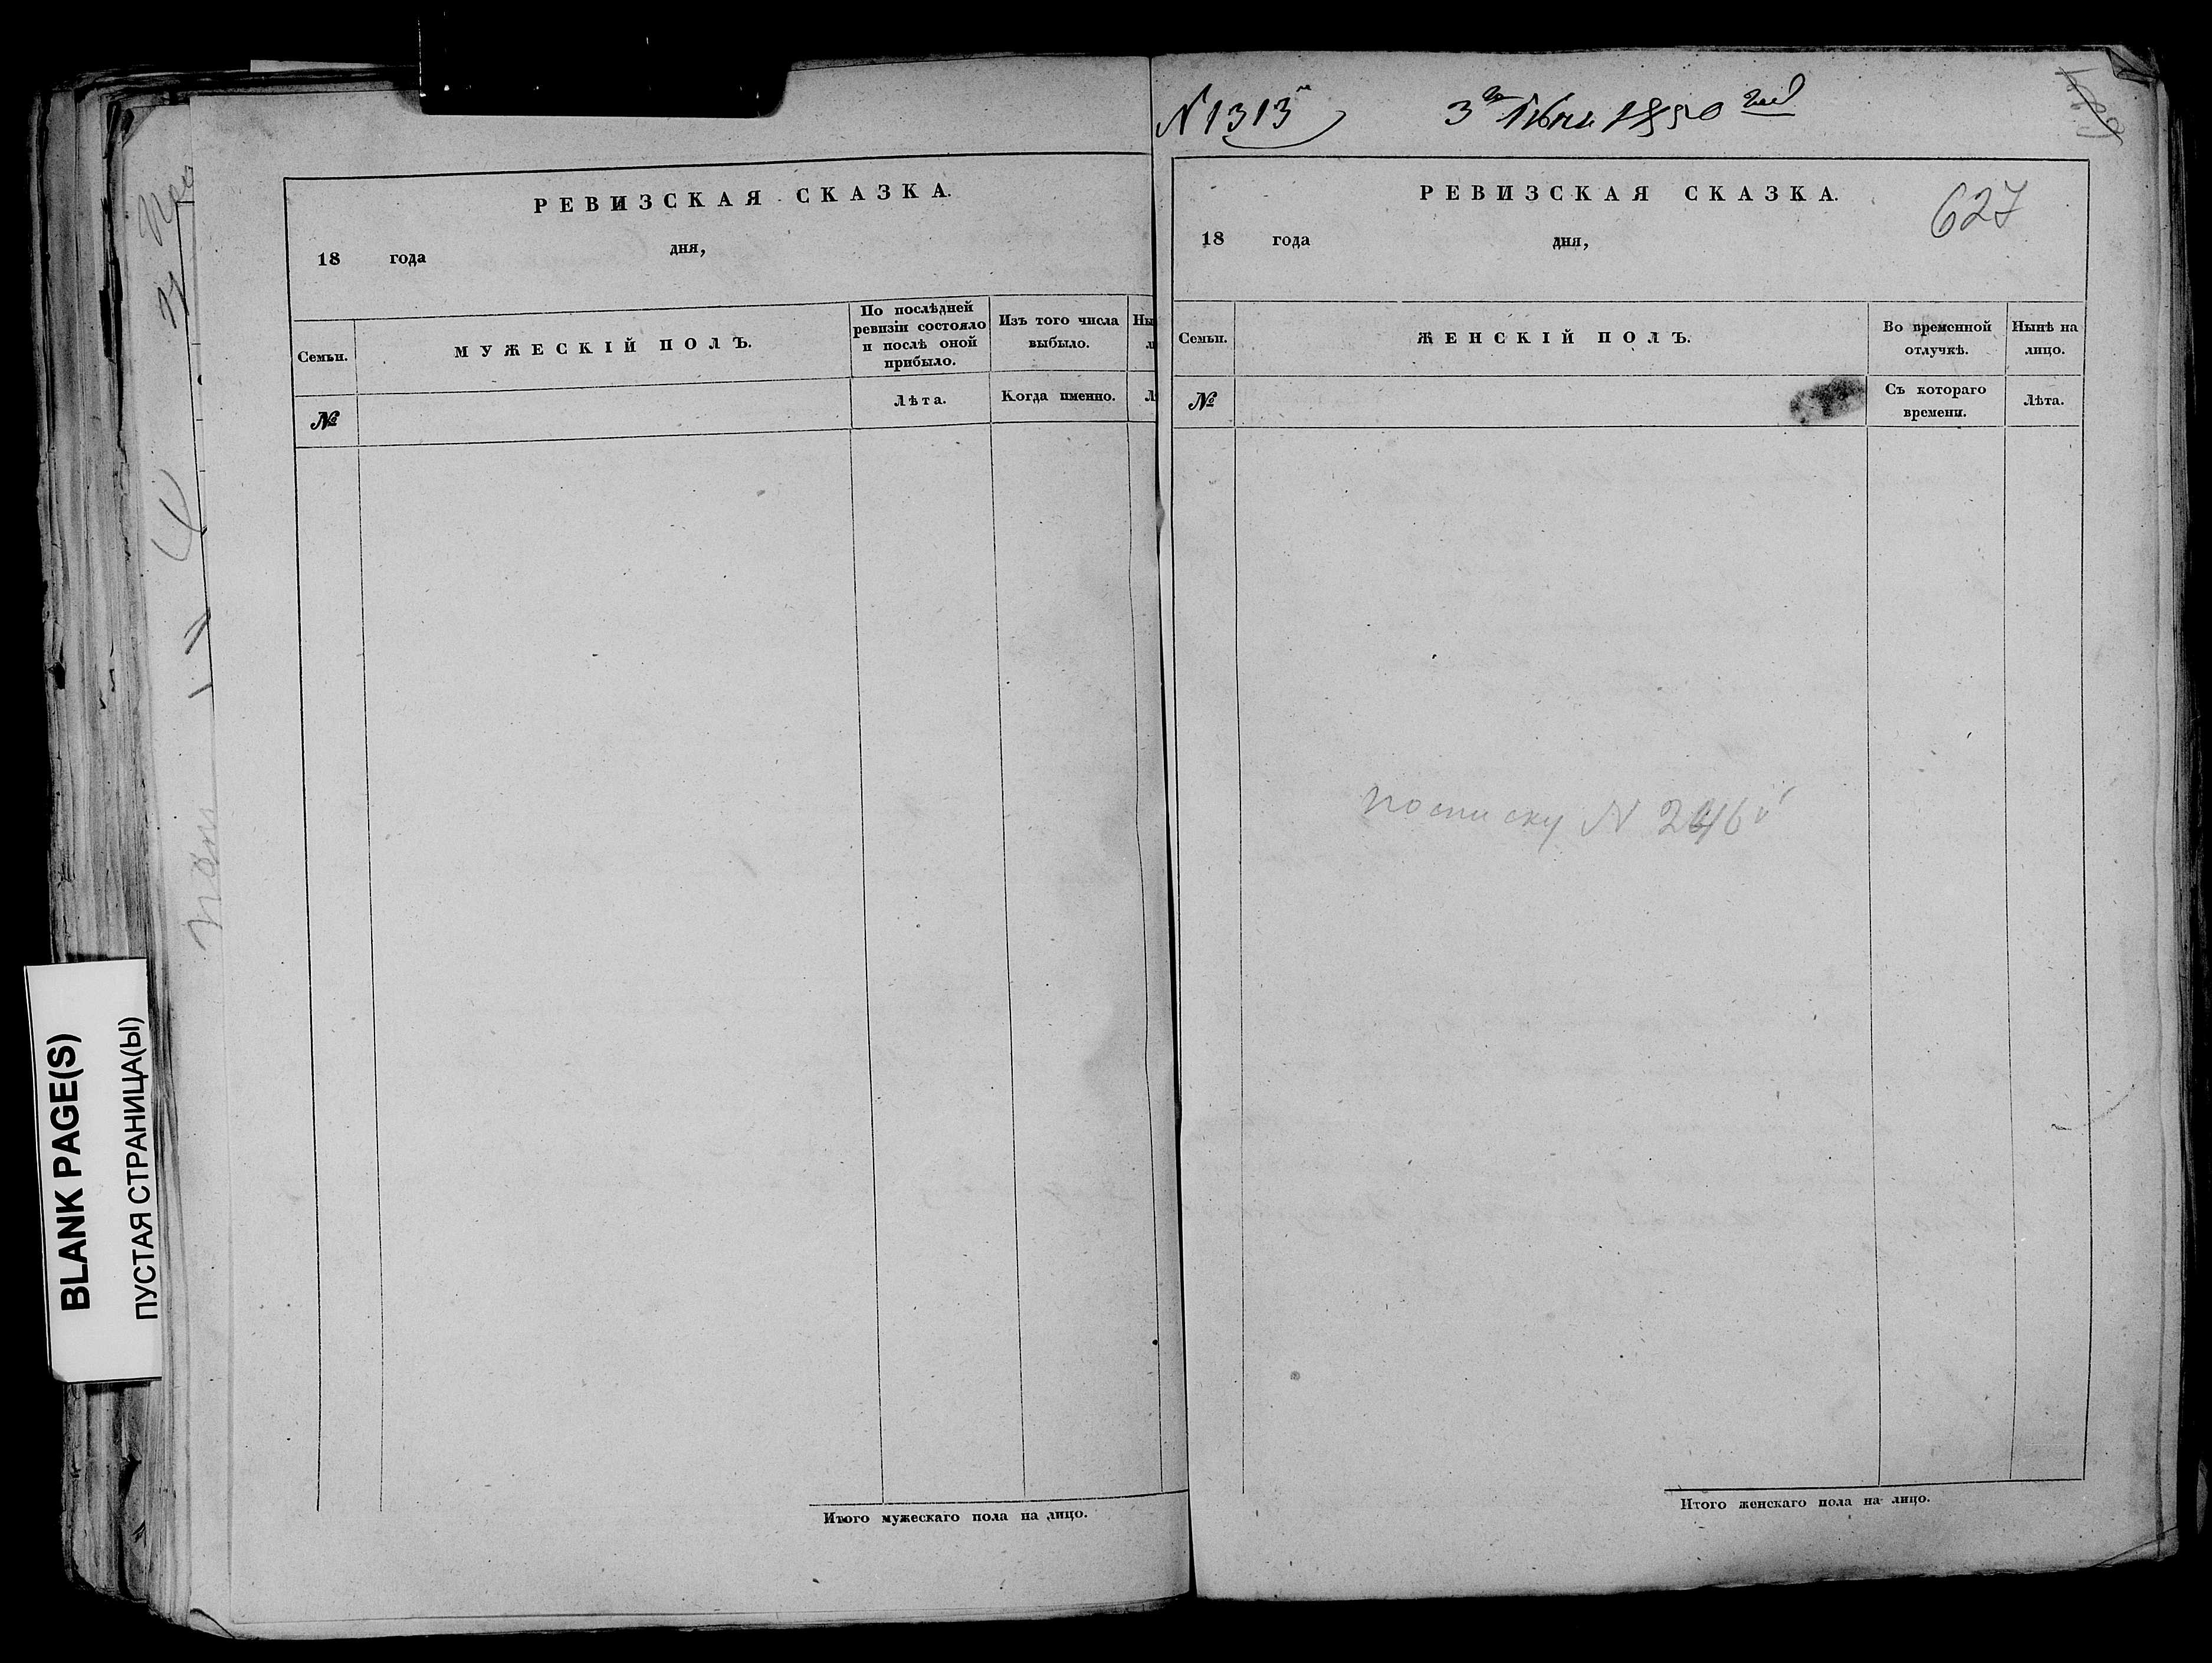 РЕВИЗСКАЯ СКАЗКА.
18 года дня,
Семьи.
МУЖЕСКІЙ ПОЛЪ.
По послѣдней
ревизіи состояло
и послѣ оной
прибыло.
Изъ того числа
выбыло.
Ны
№
Лѣта.
Когда именно.
Итого мужескаго пола на лицо.
N 1313
3го 1850 года
627
РЕВИЗСКАЯ СКАЗКА.
18 года дня,
Семьи.
ЖЕНСКІЙ ПОЛЪ.
Во временной
отлучкѣ.
Нынѣ на
лицо.
№
Съ котораго
времени.
Лѣта.
по списку N
Итого женскаго пола на лицо.
BLANK PAGE(S)
ПУСТАЯ СТРАНИЦА(Ы)